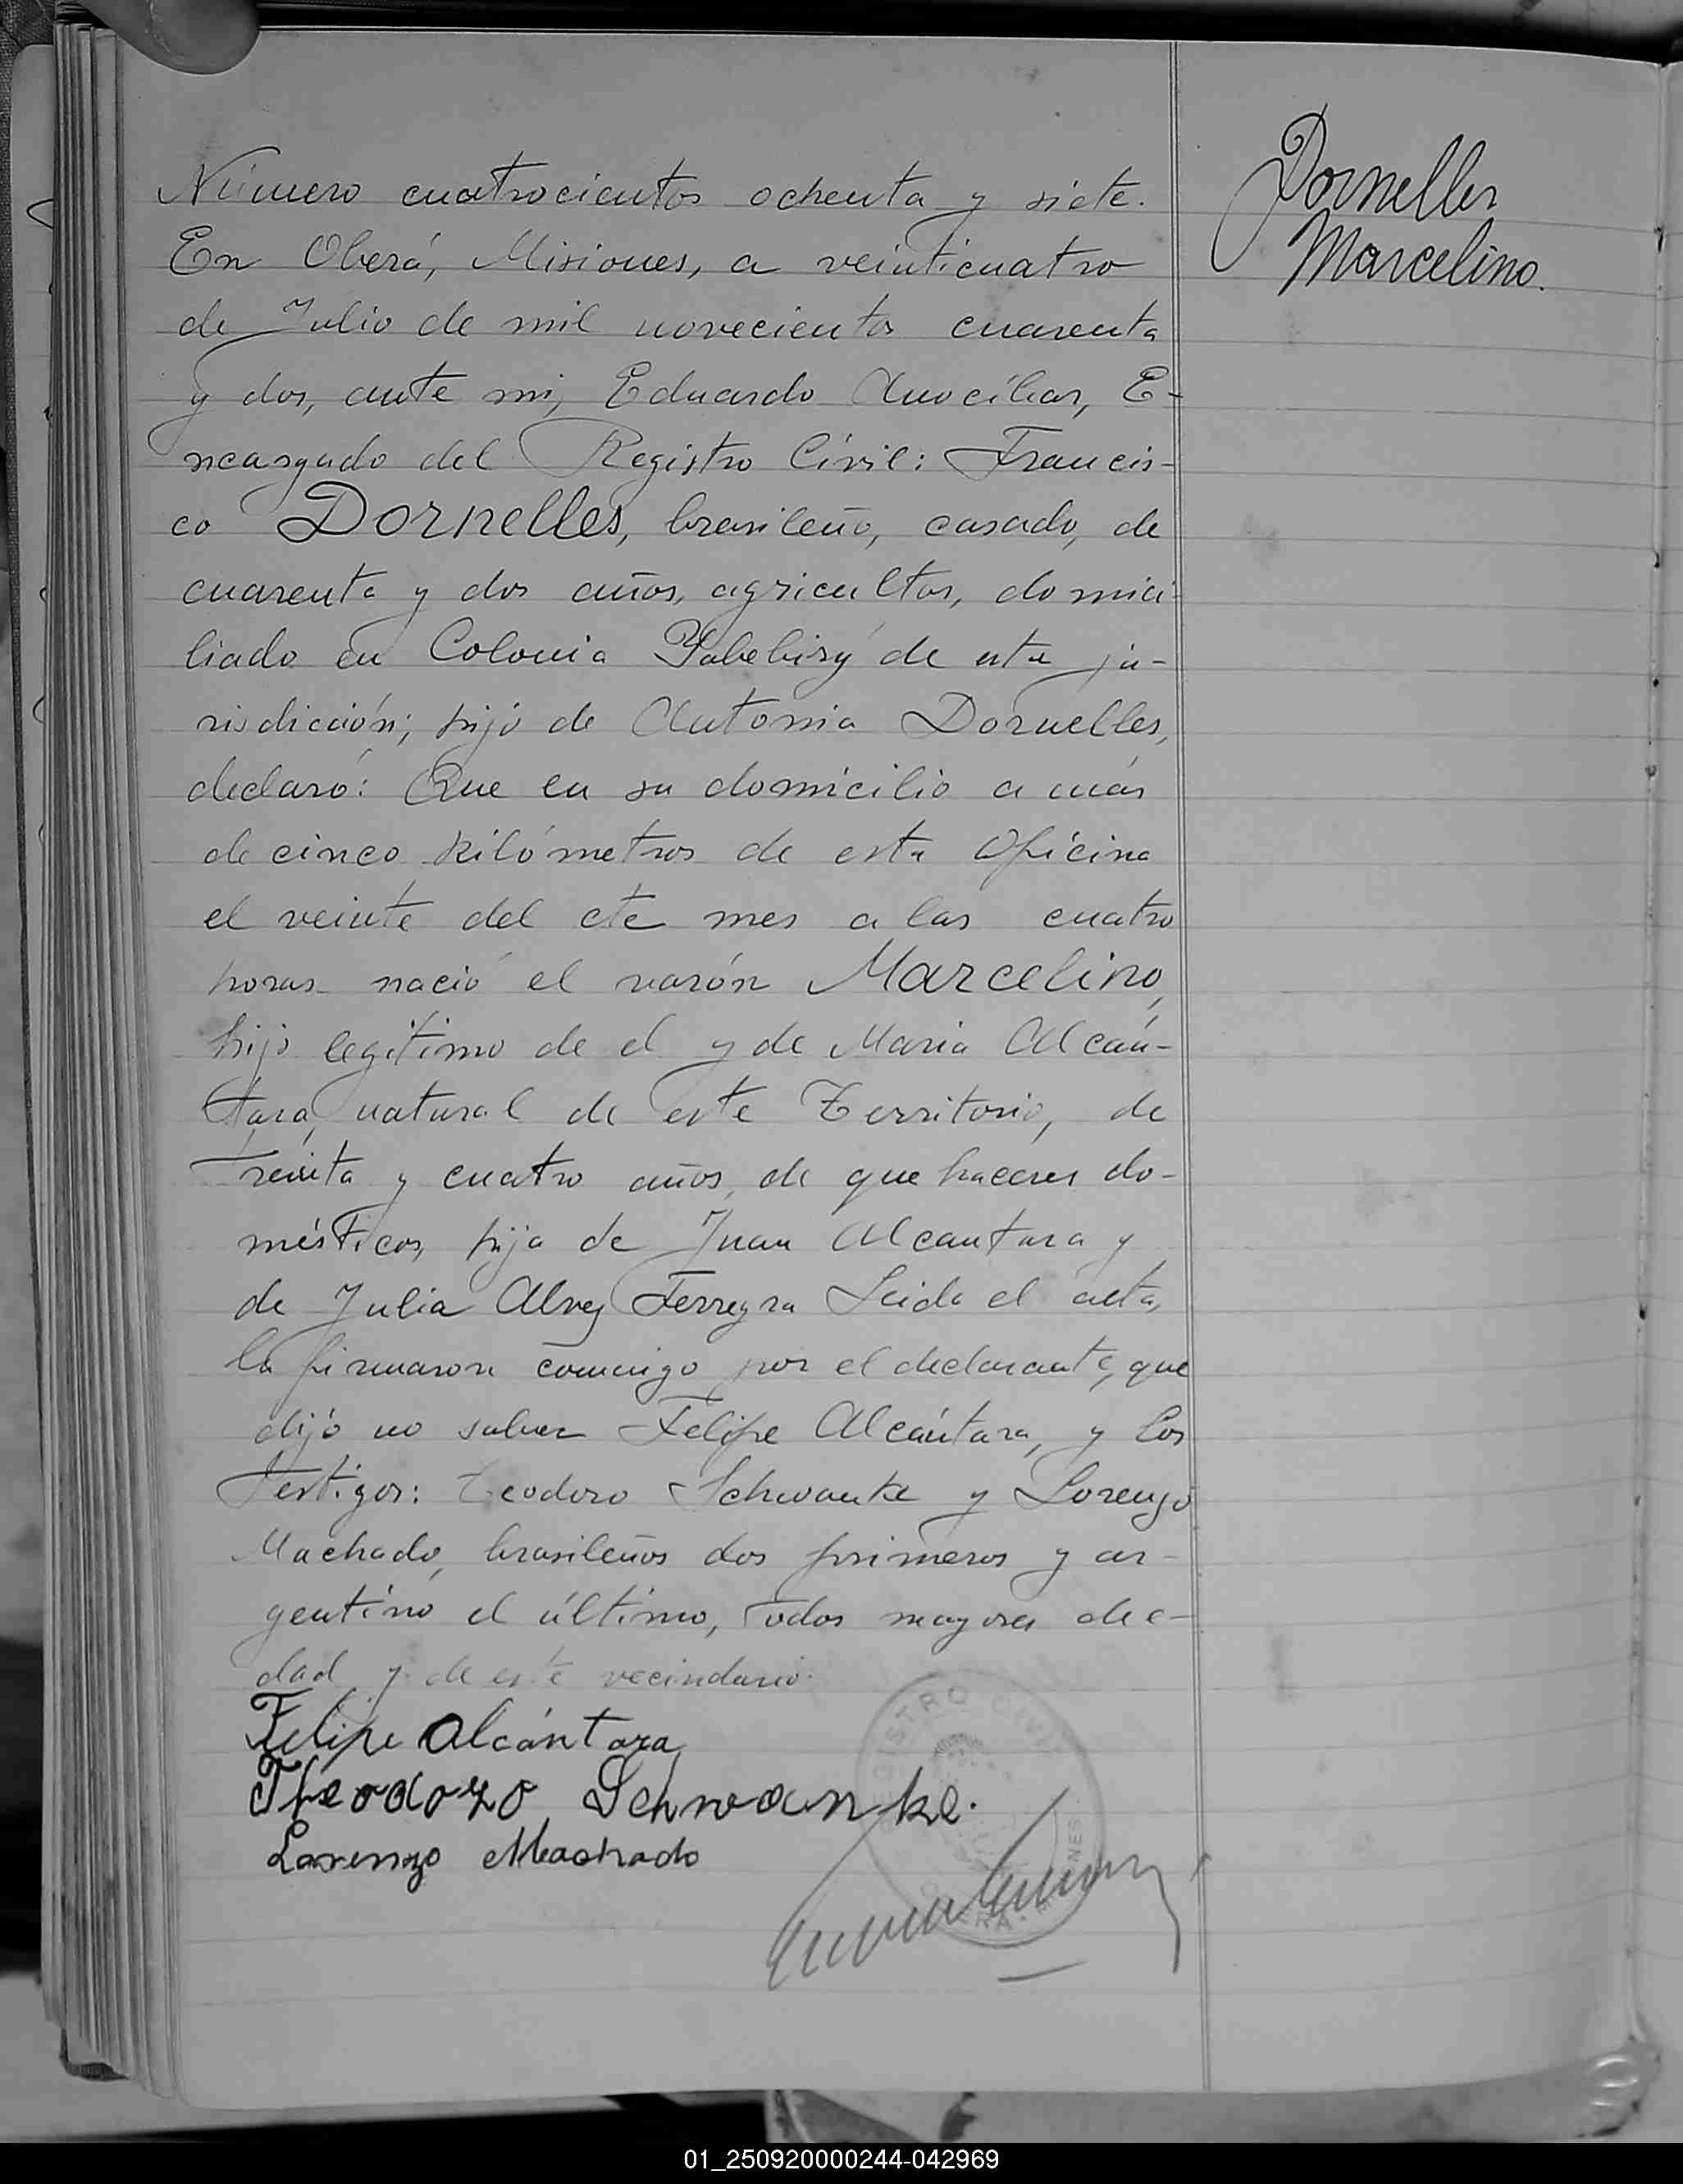 Número cuatrocientos ochenta y siete.
En Oberá, Misiones, a veinticuatro
de Julio de mil novecientos cuarenta
y dos, ante mi, Eduardo E-
ncargado del Registro Civil: Francis-
co Dornelles, brasileño, casado, de
cuarenta y dos años, agricultor, domici-
liado en Colonia Yabebirý de esta ju-
risdicción; hijo de Antonia Dornelles,
declaró: Que en su domicilio a más
de cinco kilómetros de esta Oficina
el veinte del cte mes a las cuatro
horas nació el varón Marcelino,
hijo legítimo de el y de Maria Alcán-
tara, natural de este Territorio, de
treinta y cuatro años, de que haceres do-
mésticos, hija de Juan Alcantara y
de Julia Alves Ferreyra Leida el acta,
la firmaron conmigo por el declarante, que
dijó no saber Felipe Alcántara, y los
testigos: Teodoro Schwanke y Lorenzo
Machado, brasileños dos primeros y ar-
gentino el último, todos mayores de e-
dad y de este vecindario.
Felipe Alcántara
Theodoro Schwanke.
Lorenzo Machado
REGISTRO CIVIL
OBERA - MISIONES
Dornelles
Marcelino.
01_250920000244-042969